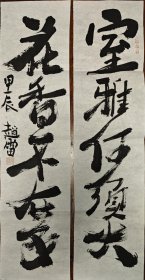 室雅何須大
花香不在多
甲辰 趙雷